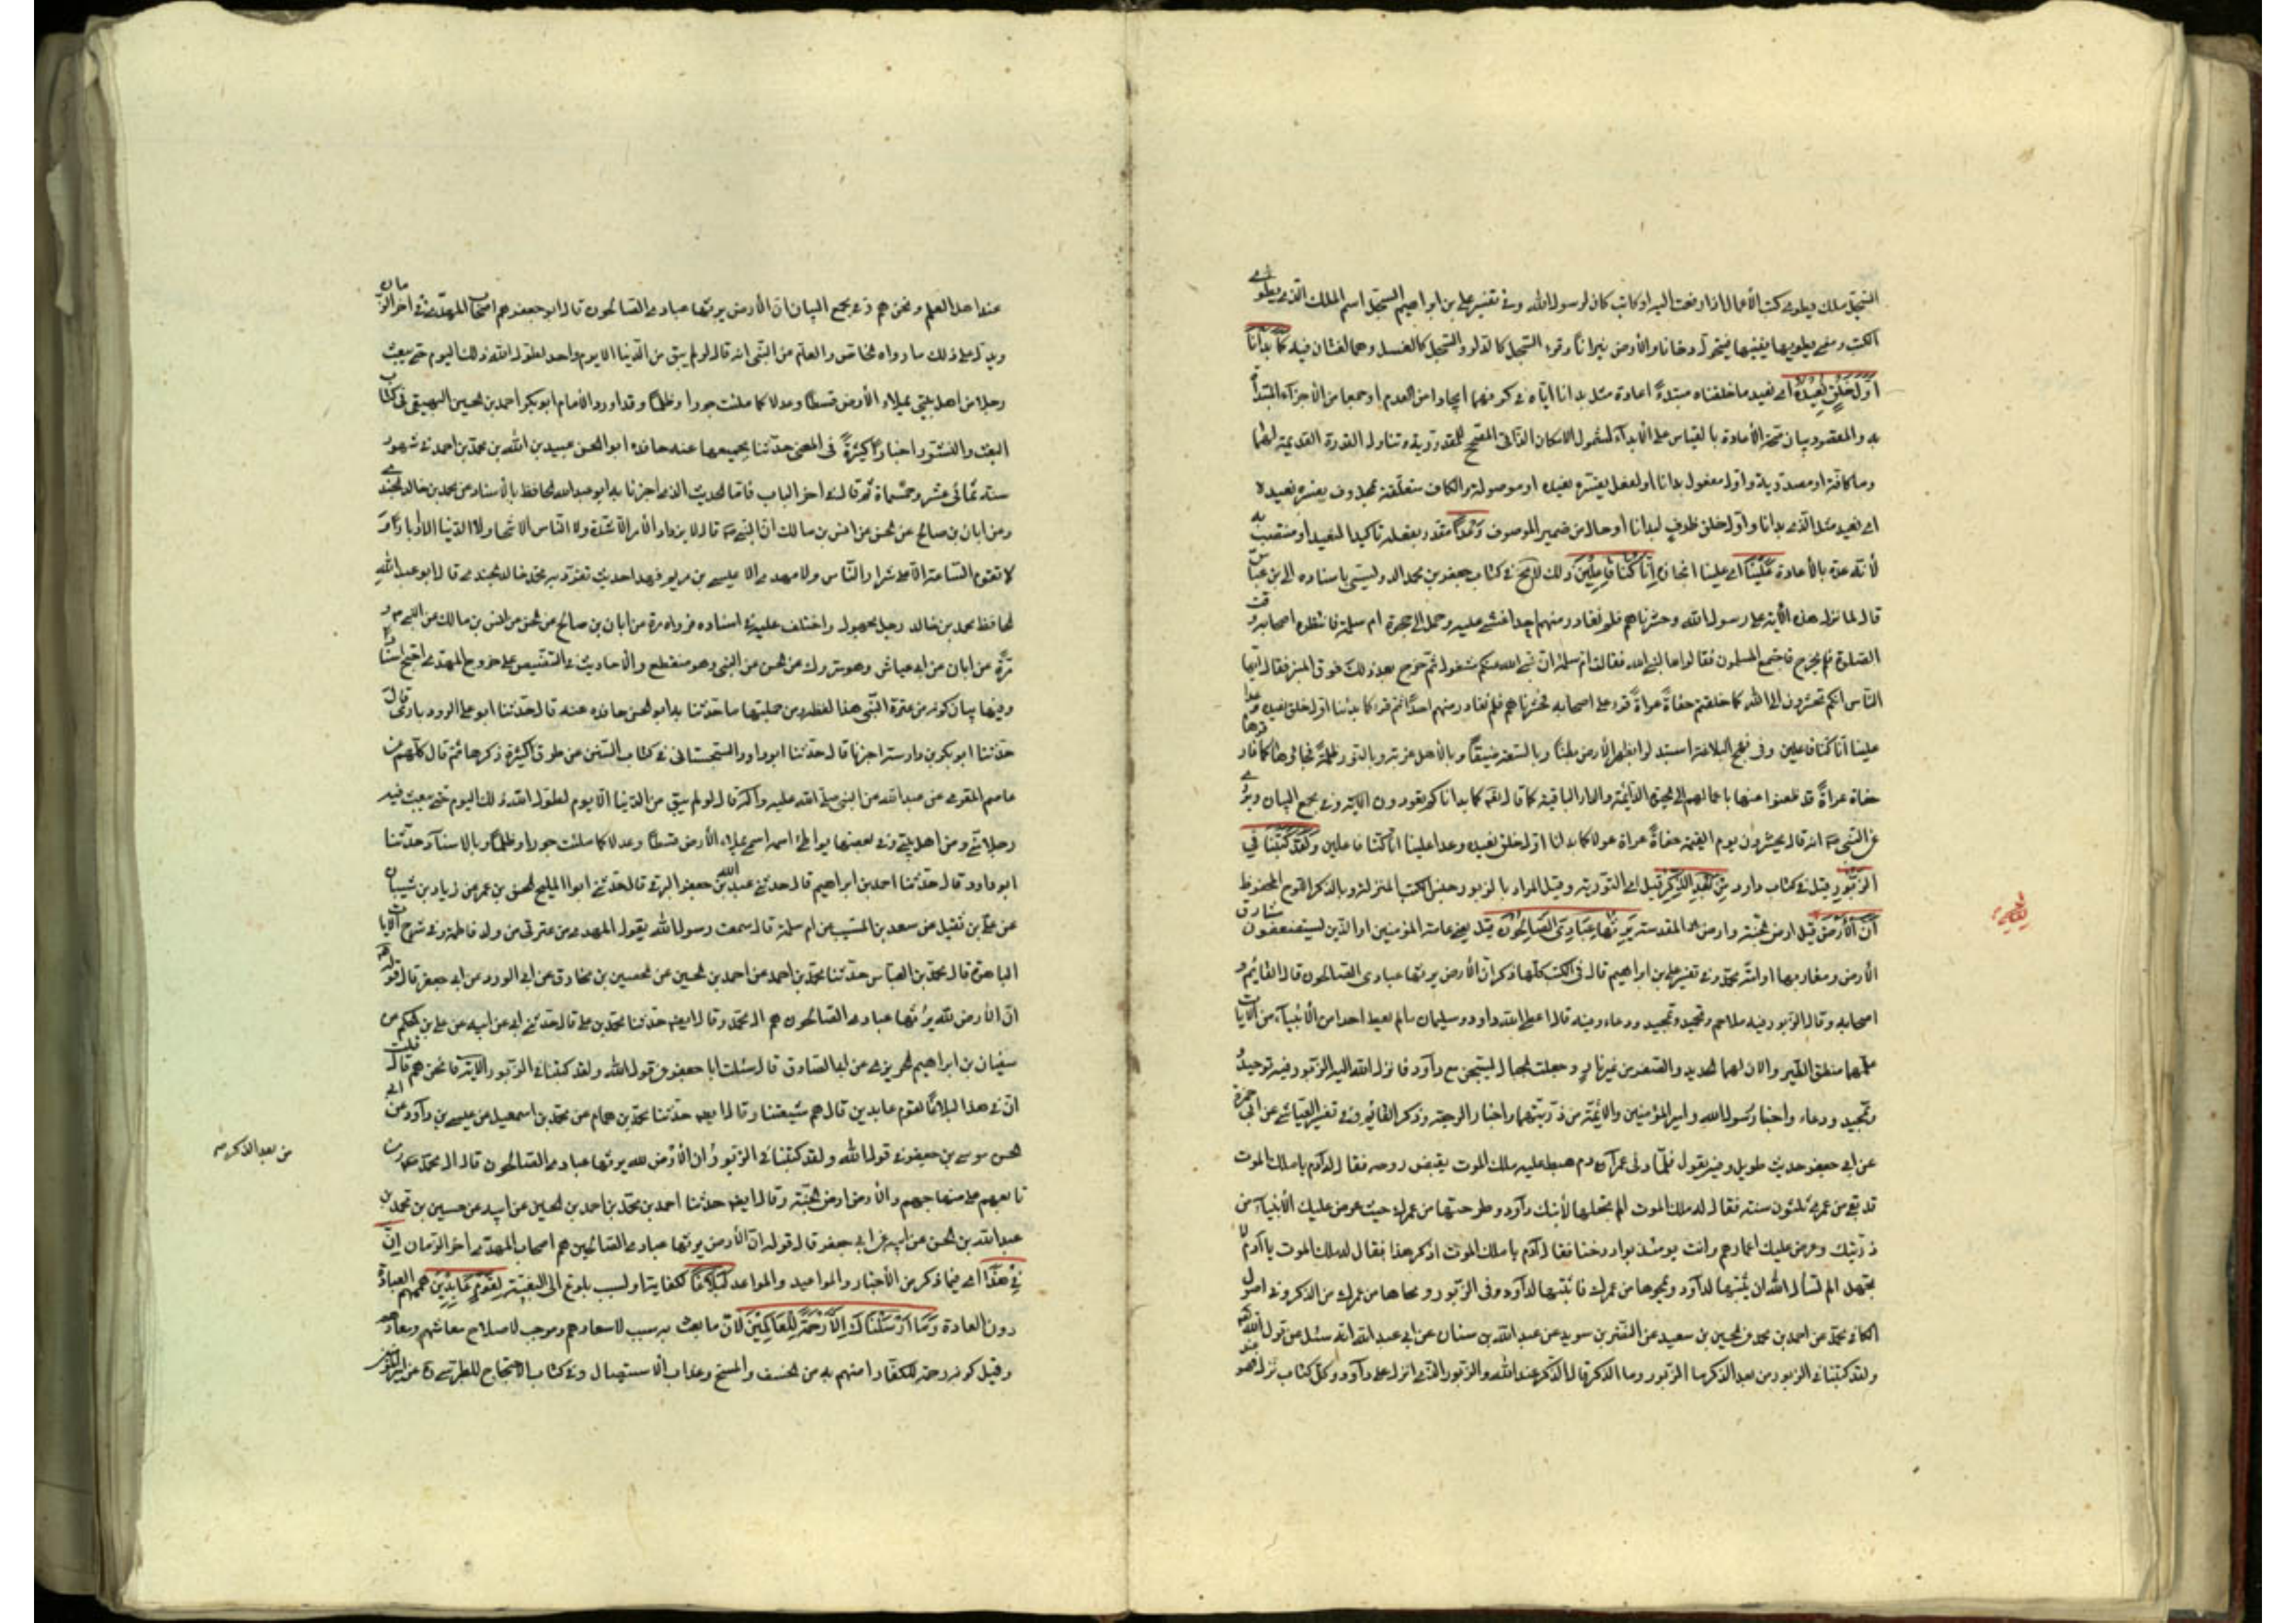 السجل ملك يطوى كتب الأعمال اذا رفعت اليه او كاتب كان لرسول الله وفى تفسير على بن ابراهيم السجل اسم الملك الذى يطوى
الكتب ومعنى يطويها يفنيها فيتحول دخانا والأرض نيرانا وقرء السجل كالدلو والسجل كالعسل وهما لغتان فيه كما بدانا
اول خلق نعيده اى نعيد ما خلقناه مبتدءً اعادة مثل بدانا اياه فى كونهما ايجادا من العدم او جمعا من الأجزاء المبتداة
به والمقصود بيان صحة الأعادة بالقياس على الأبداء لشمول الامكان الذاتى المصحح للمقدورية وتناول القدرة القديمة لهما
وما كافة او مصدرية واول مفعول بدانا او لفعل يفسره نعيده او موصولة والكاف متعلقة بمحذوف يفسره نعيده
اى نعيد مثل الذى بدانا واول خلق ظرف لبدانا او حال من ضمير الموصوف وعدا مقدر بفعله تاكيدا لنعيد او منتصب به
لأنه عدة بالأعادة علينا اى علينا انجازه انا كنا فاعلين ذلك فى كتاب جعفر بن محمد الدوريستى باسناده الى بن عباس
قال لما نزل هذه الأية على رسول الله وحشرناهم فلم نغادر منهم احدا غشى عليه وحمل الى حجرة ام سلمة فانتظره اصحابه وقت
الصلوة فلم يخرج فاجتمع المسلمون فقالوا ما لنبى الله فقالت ام سلمة ان نبى الله عنكم مشغول ثم خرج بعد ذلك فرقى المنبر فقال ايها
الناس انكم تحشرون الى الله كما خلقتم حفاة عراة ثم قرء على اصحابه وحشرناهم فلم نغادر منهم احدا ثم قرء كما بدانا اول خلق نعيده وعدا
علينا انا كنا فاعلين وفى نهج البلاغة استبدلوا بظهر الأرض بطنا وبالسعة ضيقا وبالأهل غربة وبالنور ظلمة فجاؤها كما فارقوها
حفاة عراة قد ظعنوا عنها باعمالهم الى الحيوة الدائمة والدار الباقية كما قال كما بدانا كم تعودون الاية وفى مجمع البيان وروى
عن النبى انه قال يحشرون يوم القيمة حفاة عراة كما بدانا اول خلق نعيده وعدا علينا انا كنا فاعلين ولقد كتبنا فى
الزبور قيل فى كتاب داود من بعد الذكر قيل اى التورية وقيل المراد بالزبور جنس الكتب المنزلة وبالذكر اللوح المحفوظ
ان الأرض قيل ارض الجنة وارض المقدسة يرثها عبادى الصالحون قيل يعنى عامة المؤمنين او الذين يستضعفون مشارق
الأرض ومغاربها او امة محمد وفى تفسير على بن ابراهيم قال فى الكتب كلها ذكر ان الأرض يرثها عبادى الصالحون قال القايم و
اصحابه وقال الزبور فيه ملاحم وتحميد وتمجيد ودعاء وفيه قال اعطى الله داود وسليمان ما لم يعط احدا من الأنبياء من الأيات
علمهما منطق الطير والان لهما الحديد والصفر من غير نار وجعلت الجبال يسبحن مع داود فانزل الله اليه الزبور فيه توحيد
وتمجيد ودعاء واخبار رسول الله وامير المؤمنين والائمة من ذريتهما واخبار الرجعة وذكر القائم وفى تفسير العياشى عن ابى حمزة
عن ابى جعفر حديث طويل وفيه يقول فلما دنى عمر ادم هبط عليه ملك الموت يقبض روحه فقال له ادم يا ملك الموت
قد بقى من عمرى ثلثون سنة فقال له ملك الموت الم تجعلها لأبنك داود وطرحتها من عمرك حيث عرض عليك الأنبياء من
ذريتك وعرض عليك اعمارهم وانت يومئذ بوادى دخنا فقال ادم يا ملك الموت اذكر هذا فقال له ملك الموت يا ادم لا
تجهل الم تسأل الله ان يثبتها لداود ويمحوها من عمرك فاثبتها لداود فى الزبور ومحاها من عمرك من الذكر وفى اصول
الكافى محمد عن احمد بن محمد عن الحسين بن سعيد عن النضر بن سويد عن عبد الله بن سنان عن ابى عبد الله انه سئل عن قول الله
ولقد كتبنا فى الزبور من بعد الذكر ما الزبور وما الذكر قال الذكر عند الله والزبور الذى انزل على داود وكل كتاب نزل فهو
عند اهل العلم ونحن هم وفى مجمع البيان ان الأرض يرثها عبادى الصالحون قال ابو جعفر هم اصحاب المهدى فى اخر الزمان
ويدل على ذلك ما رواه الخاص والعام من النبى انه قال لو لم يبق من الدنيا الا يوم واحد لطول الله ذلك اليوم حتى يبعث
رجلا من اهل بيتى يملاء الأرض قسطا وعدلا كما ملئت جورا وظلما وقد اورد الأمام ابو بكر احمد بن الحسين البيهقى فى كتاب
البعث والنشور اخبارا كثيرة فى المعنى حدثنا بجميعها عنه حافده ابو الحسن عبيد بن الله بن محمد بن احمد فى شهور
سنة ثمانى عشر وخمسماة ثم قال فى اخر الباب فاما الحديث الذى اخبرنا به ابو عبد الله الحافظ بالأسناد عن محمد بن خالد الجندى
وعن ابان بن صالح عن الحسن عن انس بن مالك ان النبى قال لا يزداد الأمر الا شدة ولا الناس الا شحا ولا الدنيا الا ادبارا و
لا تقوم الساعة الا على شرار الناس ولا مهدى الا عيسى بن مريم فهذا حديث تفرد به محمد خالد الجندى قال ابو عبد الله
الحافظ محمد بن خالد رجل مجهول واختلف عليه فى اسناده فرواه مرة عن ابان بن صالح عن الحسن عن انس بن مالك عن النبى و
مرة عن ابان عن ابى عياش وهو متروك عن الحسن عن النبى وهو منقطع والأحاديث فى التنصيص على خروج المهدى اصح اسنادا
وفيها بيان كونه من عترة النبى هذا لفظه ومن جملتها ما حدثنا به ابو الحسن حافده عنه قال حدثنا ابو على الرودبادى قال
حدثنا ابو بكر بن دارسته اجزنا قال حدثنا ابو داود السجستانى فى كتاب السنن عن طرق كثيرة ذكرها ثم قال كلهم عن
عاصم المقرى عن عبد الله عن النبى صلى الله عليه واله قال لو لم يبق من الدنيا الا يوم لطول الله ذلك اليوم حتى يبعث فيه
رجلا منى ومن اهل بيتى وفى بعضها يواطئ اسمه اسمى يملاء الأرض قسطا وعدلا كما ملئت جورا وظلما وبالاسناد حدثنا
ابو داود قال حدثنا احمد بن ابراهيم قال حدثنى عبد الله بن جعفر الرقى قال حدثنى ابو المليح الحسن بن عمر عن زياد بن بيان
عن على بن نفيل عن سعد بن المسيب عن ام سلمة قال سمعت رسول الله يقول المهدى من عترتى من ولد فاطمة وفى شرح الايات
الباهرة قال محمد بن العباس حدثنا محمد بن احمد عن احمد بن الحسين عن الحسين بن مخارق عن ابى الورد عن ابى جعفر قال قوله
ان الأرض لله يرثها عبادى الصالحون هم ال محمد وقال ايضا حدثنا محمد بن على قال حدثنى ابى عن ابيه عن على بن الحكم عن
سفيان بن ابراهيم الجريرى عن ابى الصادق قال سئلت ابا جعفر عن قول الله ولقد كتبنا فى الزبور الاية قال نحن هم قال قلت
ان فى هذا لبلاغا لقوم عابدين قال هم شيعتنا وقال ايضا حدثنا محمد بن همام عن محمد بن اسمعيل عن عيسى بن داود عن ابى
الحسن موسى بن جعفر فى قول الله ولقد كتبنا فى الزبور ان الأرض لله يرثها عبادى الصالحون قال ال محمد ومن
تابعهم على منهاجهم والأرض ارض الجنة وقال ايضا حدثنا احمد بن محمد بن احمد بن الحسين عن ابيه عن حسين بن محمد بن
عبد الله بن الحسن عن ابيه عن ابى جعفر قال قوله ان الأرض يرثها عبادى الصالحين هم اصحاب المهدى اخر الزمان ان
فى هذا اى فيما ذكر من الأخبار والمواعيد والمواعد لبلاغا لكفاية او لسبب بلوغ الى البغية لقوم عابدين همهم العبادة
دون العادة وما ارسلناك الا رحمة للعالمين لأن ما بعث به سبب لاسعادهم وموجب لاصلاح معاشهم ومعادهم
وقيل كونه رحمة للكفار امنهم به من الخسف والمسخ وعذاب الاستيصال وفى كتاب الاحتجاج للطبرسى عن امير المؤمنين
من بعد الذكر